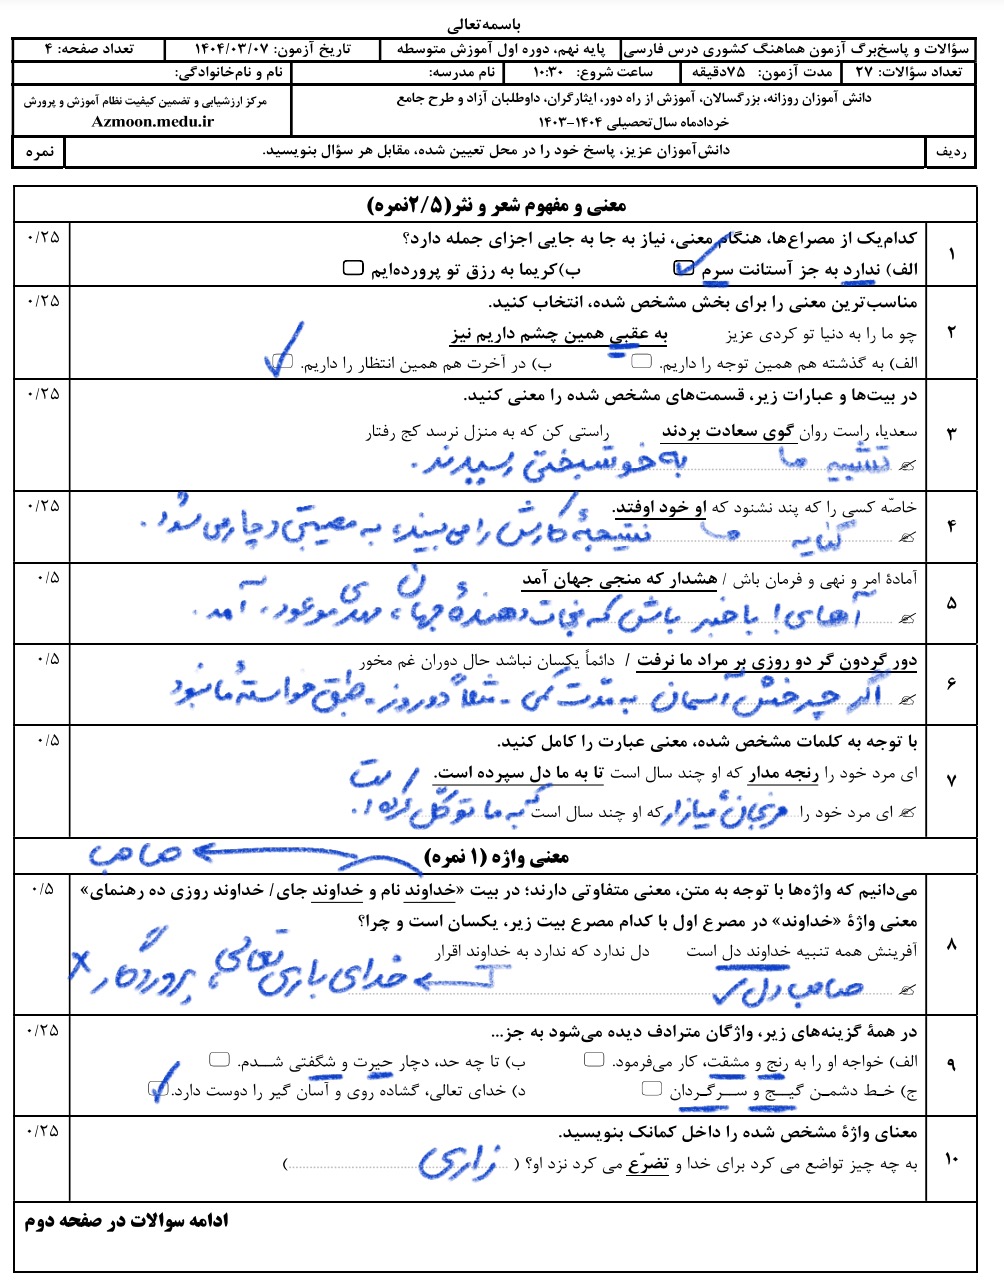 باسمه‌تعالی
سؤالات و پاسخ‌برگ آزمون هماهنگ کشوری درس فارسی | پایه نهم، دوره اول آموزش متوسطه | تاریخ آزمون: ۱۴۰۴/۰۳/۰۷ | تعداد صفحه: ۴
تعداد سؤالات: ۲۷ | مدت آزمون: ۷۵دقیقه | ساعت شروع: ۱۰:۳۰ | نام مدرسه: | نام و نام‌خانوادگی:
دانش آموزان روزانه، بزرگسالان، آموزش از راه دور، ایثارگران، داوطلبان آزاد و طرح جامع
خردادماه سال‌تحصیلی ۱۴۰۴-۱۴۰۳
مرکز ارزشیابی و تضمین کیفیت نظام آموزش و پرورش
Azmoon.medu.ir
ردیف | دانش‌آموزان عزیز، پاسخ خود را در محل تعیین شده، مقابل هر سؤال بنویسید. | نمره
معنی و مفهوم شعر و نثر(۲/۵نمره)
۱ | کدام‌یک از مصراع‌ها، هنگام معنی، نیاز به جا به جایی اجزای جمله دارد؟ | ۰/۲۵
الف) ندارد به جز آستانت سرم ب)کریما به رزق تو پرورده‌ایم
۲ | مناسب‌ترین معنی را برای بخش مشخص شده، انتخاب کنید. | ۰/۲۵
چو ما را به دنیا تو کردی عزیز به عقبی همین چشم داریم نیز
الف) به گذشته هم همین توجه را داریم. ب) در آخرت هم همین انتظار را داریم.
۳ | در بیت‌ها و عبارات زیر، قسمت‌های مشخص شده را معنی کنید. | ۰/۲۵
سعدیا، راست روان گوی سعادت بردند راستی کن که به منزل نرسد کج رفتار
تشبیه ها به خوشبختی رسیدند.
۴ | خاصّه کسی را که پند نشنود که او خود اوفتد. | ۰/۲۵
کنایه ها نتیجهٔ کارش را می‌بیند، به مصیبتی دچار می‌شود.
۵ | آمادهٔ امر و نهی و فرمان باش / هشدار که منجی جهان آمد | ۰/۵
آهای! باخبر باش که نجات دهندهٔ جهان، مهدی موعود، آمد.
۶ | دور گردون گر دو روزی بر مراد ما نرفت / دائماً یکسان نباشد حال دوران غم مخور | ۰/۵
اگر چرخش آسمان به مدّت کمی - مثلاً دو روز - طبق خواستهٔ ما نبود
۷ | با توجه به کلمات مشخص شده، معنی عبارت را کامل کنید. | ۰/۵
ای مرد خود را رنجه مدار که او چند سال است تا به ما دل سپرده است.
ای مرد خود را مرنجان، میازار که او چند سال است که به ما توکّل کرده است.
معنی واژه (۱ نمره)
صاحب
۸ | می‌دانیم که واژه‌ها با توجه به متن، معنی متفاوتی دارند؛ در بیت «خداوند نام و خداوند جای/ خداوند روزی ده رهنمای» | ۰/۵
معنی واژهٔ «خداوند» در مصرع اول با کدام مصرع بیت زیر، یکسان است و چرا؟
آفرینش همه تنبیه خداوند دل است دل ندارد که ندارد به خداوند اقرار
صاحب دل خدای باری تعالی، پروردگار
۹ | در همهٔ گزینه‌های زیر، واژگان مترادف دیده می‌شود به جز... | ۰/۲۵
الف) خواجه او را به رنج و مشقت، کار می‌فرمود. ب) تا چه حد، دچار حیرت و شگفتی شــدم.
ج) خـط دشمـن گیــج و ســرگـردان د) خدای تعالی، گشاده روی و آسان گیر را دوست دارد.
۱۰ | معنای واژهٔ مشخص شده را داخل کمانک بنویسید. | ۰/۲۵
به چه چیز تواضع می کرد برای خدا و تضرّع می کرد نزد او؟ (زاری)
ادامه سوالات در صفحه دوم